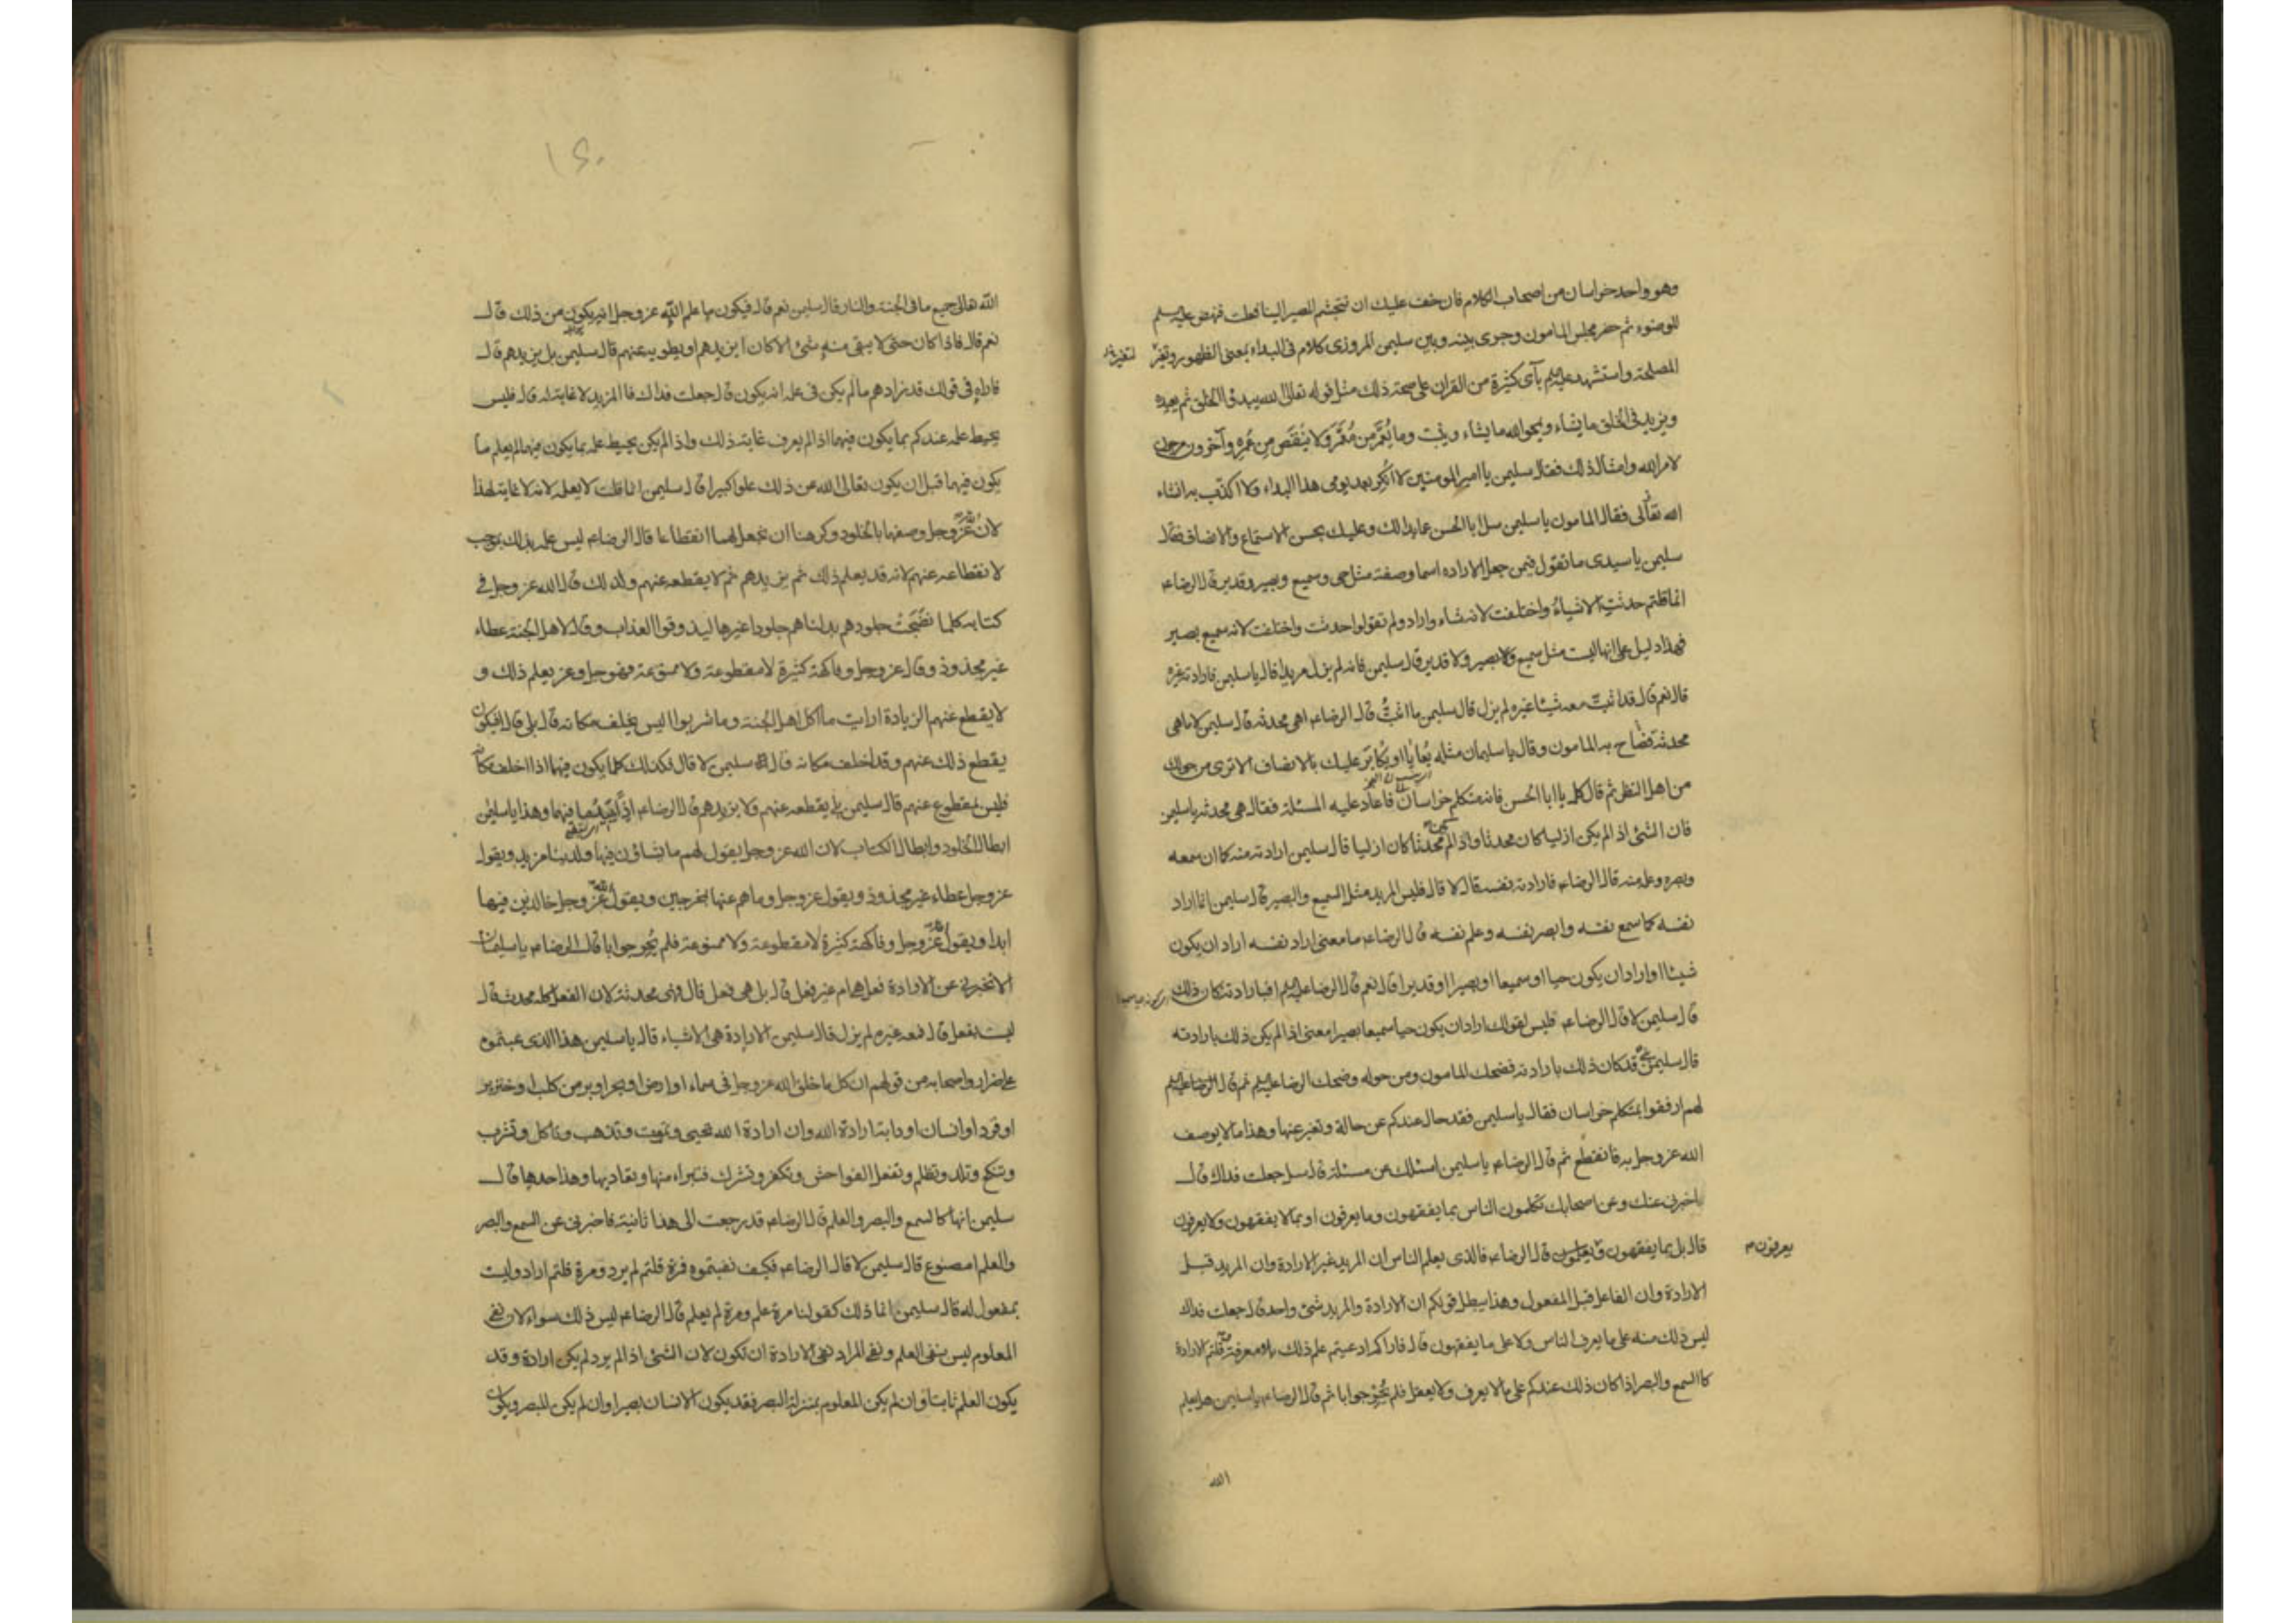 وهو واحد خراسان من اصحاب الكلام فان خف عليك ان تتجشم المصير الينا فعلت فنهض عليه السلم
للوضوء ثم حضر مجلس المامون وجرى بينه وبين سليمن المروزى كلام فى البداء بمعنى الظهور
المصلحة واستشهد عليه السلم بآى كثيرة من القران على صحة ذلك مثل قوله تعالى الله يبدؤ الخلق ثم يعيده
ويزيد فى الخلق ما يشاء ويمحو الله ما يشاء ويثبت وما يُعَمَّر من مُعَمَّر ولا يُنْقَص مِن عُمُرِه وآخرون مرجون
لامر الله وامثال ذلك فقال سليمن يا امير المومنين لا اُنكِر بعد يومى هذا البداء ولا اكذّب به انشاء
الله تعالى فقال المامون يا سليمن سل ابا الحسن عما بدا لك وعليك بحسن الاستماع والانصاف فقال
سليمن يا سيدى ما تقول فيمن جعل الاراده اسما وصفة مثل حى وسميع وبصير وقدير قال الرضا عم
انما قلتم حدثت الاشياءُ واختلفت لانه شاء واراد ولم تقولوا حدثت واختلفت لانه سميع بصير
فهذا دليل على انها ليست مثل سميع ولا بصير ولا قدير قال سليمن فانه لم يزل مريدا قال يا سليمن فارادته غيره
قال نعم قال قد اثبتّ معه شيئا غيره لم يزل قال سليمن ما اثبتُّ قال الرضا عم اهى محدثه قال سليمن لا ما هى
محدثة فصاح به المامون وقال يا سليمان مثله يُعايا او يُكابَر عليك بالانصاف الا ترى من حولك
من اهل النظر ثم قال كلمه يا ابا الحسن فانه متكلم خراسان فاعاد عليه المسئلة فقال هى محدثه يا سليمن
فان الشئ اذا لم يكن ازليا كان محدثا واذا لم يكن محدثا كان ازليا قال سليمن ارادته منه كما ان سمعه
وبصره وعلمه منه قال الرضا عم فارادته نفسه قال لا قال فليس المريد مثل السميع والبصير قال سليمن انما اراد
نفسه كما سمع نفسه وابصر نفسه وعلم نفسه قال الرضا عم ما معنى اراد نفسه اراد ان يكون
شيئا او اراد ان يكون حيا او سميعا او بصيرا او قديرا قال نعم قال الرضا عليه السلم افبارادته كان ذلك
قال سليمن لا قال الرضا عم فليس لقولك اراد ان يكون حيا سميعا بصيرا معنى اذا لم يكن ذلك بارادته
قال سليمن بلى قد كان ذلك بارادته فضحك المامون ومن حوله وضحك الرضا عليه السلم ثم قال الرضا عليه السلم
لهم ارفقوا بمتكلم خراسان فقال يا سليمن فقد حال عندكم عن حالة وتغير عنها وهذا ما لا يوصف
الله عز وجل به فانقطع ثم قال الرضا عم يا سليمن اسئلك عن مسئلة قال سل جعلت فداك قال
اخبرنى عنك وعن اصحابك تكلمون الناس بما يفقهون وما يعرفون او بما لا يفقهون ولا يعرفون
قال بل بما يفقهون ويعلمون قال الرضا عم فالذى يعلم الناس ان المريد غير الارادة وان المريد قبل
يعرفون
الارادة وان الفاعل قبل المفعول وهذا يبطل قولكم ان الارادة والمريد شئ واحد قال جعلت فداك
ليس ذلك منه على ما يعرف الناس ولا على ما يفقهون قال فاراكم ادعيتم علم ذلك بلا معرفة وقلتم الارادة
كالسمع والبصر اذا كان ذلك عندكم على ما لا يعرف ولا يعقل فلم يُحِرْ جوابا ثم قال الرضا عم يا سليمن هل يعلم
الله
الله تعالى جميع ما فى الجنة والنار قال سليمن نعم قال فيكون ما علم الله عز وجل انه يكون من ذلك قال
نعم قال فاذا كان حتى لا يبقى منه شئ الا كان ايزيدهم او يطويه عنهم قال سليمن بل يزيدهم قال
فاراه فى قولك قد زادهم ما لم يكن فى علمه انه يكون قال جعلت فداك فالمزيد لا غاية له قال فليس
يحيط علمه عندكم بما يكون فيهما اذا لم يعرف غاية ذلك واذا لم يكن يحيط علمه بما يكون فيهما لم يعلم ما
يكون فيهما قبل ان يكون تعالى الله عن ذلك علوا كبيرا قال سليمن انما قلت لا يعلمه لانه لا غاية لهذا
لان الله عز وجل وصفهما بالخلود وكرهنا ان نجعل لهما انقطاعا قال الرضا عم ليس علمه بذلك بموجب
لانقطاعه عنهم لانه قد يعلم ذلك ثم يزيدهم ثم لا يقطعه عنهم ولذلك قال الله عز وجل فى
كتابه كلما نضجت جلودهم بدلناهم جلودا غيرها ليذوقوا العذاب وقال لاهل الجنة عطاء
غير مجذوذ وقال عز وجل وفاكهة كثيرة لا مقطوعة ولا ممنوعة فهو جل وعز يعلم ذلك و
لا يقطع عنهم الزيادة ارايت ما اكل اهل الجنة وما شربوا اليس يخلف مكانه قال بلى قال افيكون
يقطع ذلك عنهم وقد اخلف مكانه قال سليمن لا قال فكذلك كلما يكون فيهما اذا اخلف مكانه
فليس بمقطوع عنهم قال سليمن بلى يقطعه عنهم ولا يزيدهم قال الرضا عم اذًا يبيد ما فيهما وهذا يا سليمن
ابطال الخلود وابطال الكتاب لان الله عز وجل يقول لهم ما يشاؤن فيها ولدينا مزيد ويقول
عز وجل عطاء غير مجذوذ ويقول عز وجل وما هم عنها بمخرجين ويقول الله عز وجل خالدين فيها
ابدا ويقول الله عز وجل وفاكهة كثيرة لا مقطوعة ولا ممنوعة فلم يُحِرْ جوابا قال الرضا عم يا سليمان
الا تخبرنى عن الارادة فعل هى ام غير فعل قال بل هى فعل قال فهى محدثة لان الفعل كله محدث قال
ليست بفعل قال فمعه غيره لم يزل قال سليمن الارادة هى الاشياء قال يا سليمن هذا الذى عبتموه
على ضرار واصحابه من قولهم ان كل ما خلق الله عز وجل فى سماء او ارض او بحر او بر من كلب او خنزير
او قرد او انسان او دابة ارادة الله وان ارادة الله تحيى وتموت وتذهب وتاكل وتشرب
وتنكح وتلد وتظلم وتفعل الفواحش وتكفر وتشرك فتبراء منها وتعاديها وهذا حدها قال
سليمن انها كالسمع والبصر والعلم قال الرضا عم قد رجعت الى هذا ثانية فاخبرنى عن السمع والبصر
والعلم امصنوع قال سليمن لا قال الرضا عم فكيف نفيتموه فمرة قلتم لم يرد ومرة قلتم اراد وليست
بمفعول له قال سليمن انما ذلك كقولنا مرة علم ومرة لم يعلم قال الرضا عم ليس ذلك سواء لان نفى
المعلوم ليس بنفى العلم ونفى المراد نفى الارادة ان تكون لان الشئ اذا لم يرد لم يكن ارادة وقد
يكون العلم ثابتا وان لم يكن المعلوم بمنزلة البصر فقد يكون الانسان بصيرا وان لم يكن المبصر ويكون